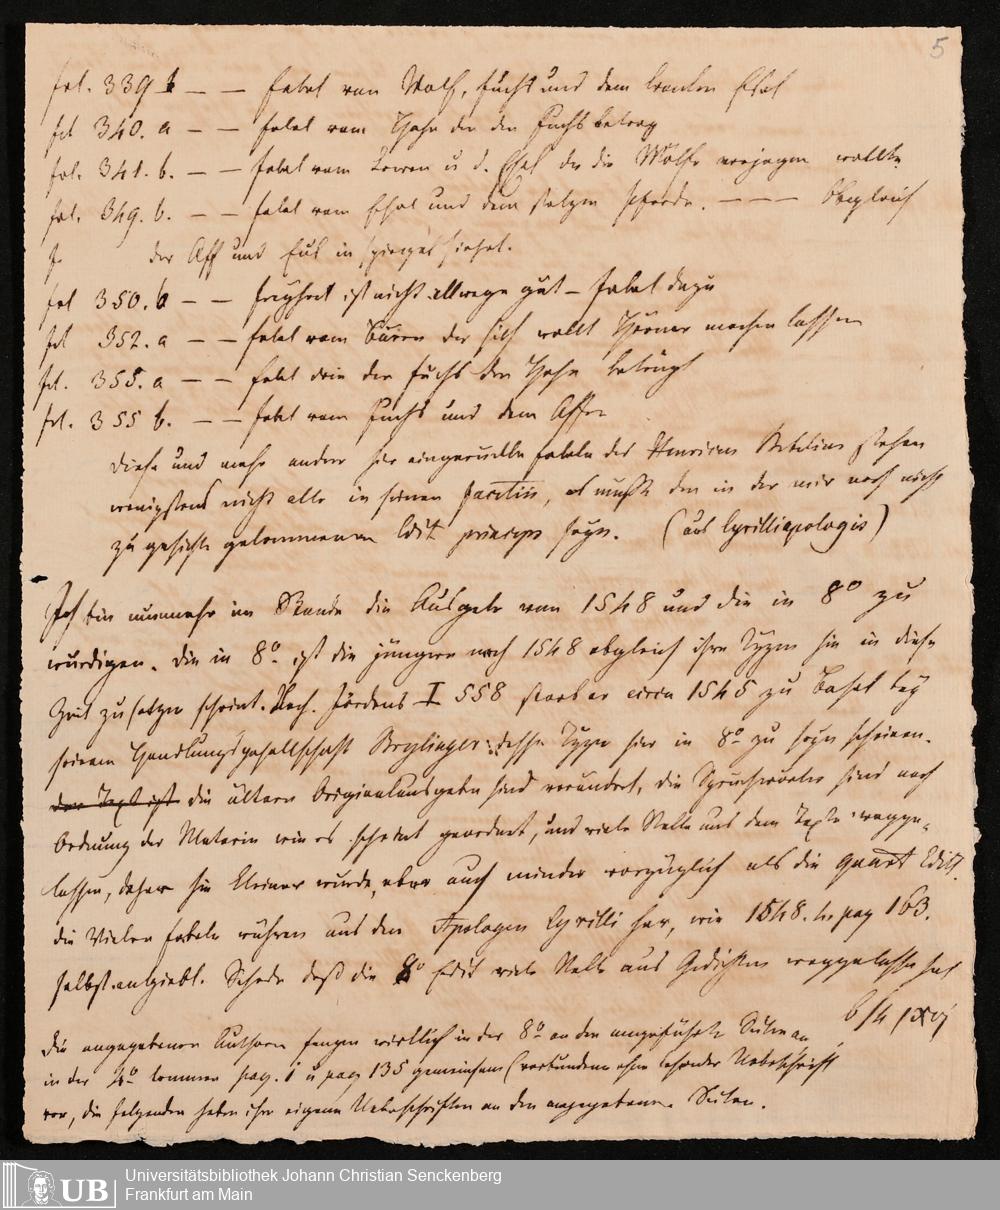 5
fol. 339 b — — fabel von Wolf, fuchs und dem kranken Esel
fol 340. a — — fabel vom Hahn der den Fuchs betrog
fol. 341. b. — — fabel vom Löwen u d. Esel die die Wölfe verjagen wollten
fol. 349. b. — — fabel vom Esel und dem stolzen Pferde. — — — Obgleich
der Aff und Eul in spiegel siehet.
fol 350. b — — freyheit ist nicht allwege gut – fabel dazu
fol 352. a — — fabel vom der sich wollt Hörner machen lassen
fol. 355. a — — fabel wie der fuchs den Hahn betrügt
fol. 355 b. — — fabel vom Fuchs und dem Affen
Diese und mehr andere hier fabeln des Henricus Bebelius stehen
wenigstens nicht alle in seinen facetiis, es müßte den in der mir noch nicht
zu gesichte gekommenen Edit princeps seyn. (aus Cyrilli apologis)
Ich bin nunmehr im Stande die Ausgabe von 1548 und die in 8º zu
würdigen. die in 8º. ist die jüngere nach 1548 obgleich ihre Typen sie in diese
Zeit zu setzen scheint. Nach. Jördens I 558 starb er circa 1545 zu Basel bey
seinem Handlungsgesellschaft Brylinger: dessen Typen hier in 8º zu seyn scheinen.
der Text ist die ältern Originalausgaben sind verändert, die Sprichwörter sind nach
Ordnung der Materien wie es scheint geordnet, und viele Stelle aus dem Texte wegge-
lassen, daher sie kleiner wurde, aber auch minder vorzüglich als die Quart Edit.
die Vielen fabeln rühren aus den Apologen Cyrilli her, wie 1548. h. pag 163.
selbst angiebt. Schade daß die 8º Edit viele Stelle aus Gedichten weggelassen hat
die angegebenen Authoren fangen wirklich in der 8º an den angeführten Seiten an
in der 4º kommen pag. 1 u pag 135 gemeinsam (verbunden ohne besonder Ueberschrift
vor, die folgenden haben ihre eigene Ueberschriften an den angegebenen Seiten.
Universitätsbibliothek Johann Christian Senckenberg
Frankfurt am Main
UB